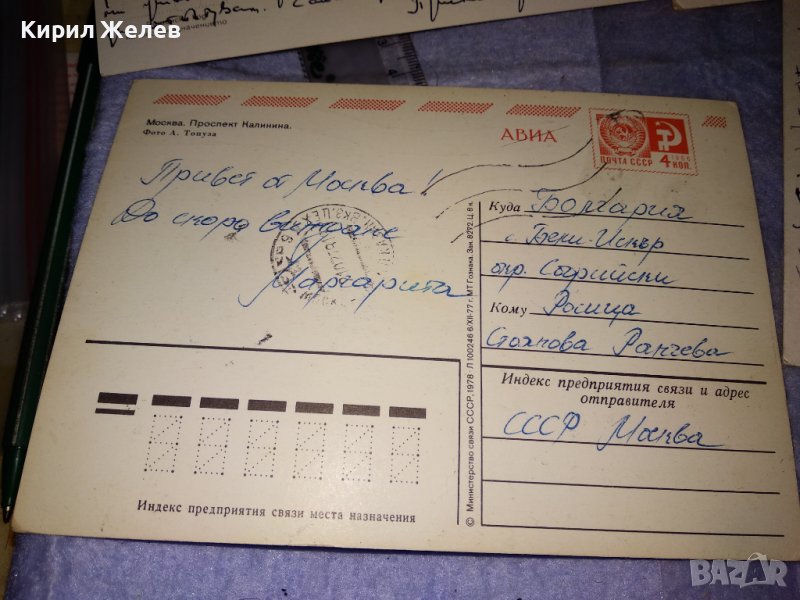 Кирил Желев
Москва. Проспект Калинина.
Фото А. Топуза
АВИА
ПОЧТА СССР
1966
4 КОП.
Привет от Москва!
До скоро виждане
Маргарита
Куда България
с. Бели-Искър
окр. Софийски
Кому Росица
Стоянова Ранчева
Индекс предприятия связи и адрес
отправителя
СССР Москва
© Министерство связи СССР, 1978 Л 100246 6/XII-77 г. МТ Гознака. Зак. 8292. Ц. 8 к.
Индекс предприятия связи места назначения
BAZAR